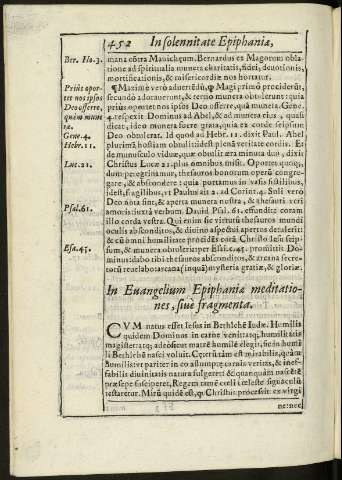 452 In solennitate Epiphaniæ,
Ber. Ho.3.
mana cōtra Manichęum. Bernardus ex Magorum obla-
tione ad spiritualia munera charitatis, fidei, deuotionis,
mortificationis, & misericordiæ nos hortatur.
Priùs opor-
tet nos ipsos
Deo offerre,
quàm mune
ra.
Gene.4.
Hebr.11.
Luc.21.
Psal.61.
Esa.45.
¶Maximè verò aduertēdū, ꝙ Magi primò procidērūt,
secundò adorauerunt, & tertiò munera obtulerunt: quia
priùs oportet nos ipsos Deo offerre, quā munera. Gene.
4. respexit Dominus ad Abel, & ad munera eius, quasi
dicat, ideo munera fuere grata, quia ex corde seipsum
Deo obtulerat. Id quod ad Hebr. 11. dixit Paul. Abel
plurimā hostiam obtulit idest plenā veritate cordis. Et
de munusculo viduæ, quæ obtulit æra minuta duo, dixit
Christus Lucæ 21. plus omnibus misit. Oportet quoq;
dum peregrinamur, thesauros bonorum operū congre-
gare, & abscondere: quia portamus in vasis fictilibus,
idest, fragilibus, vt Paulus ait 2. ad Corint. 4. Soli verò
Deo nota sint, & aperta munera nostra, & thesauri veri
amoris iuxta verbum. David Psal. 61. effundite coram
illo corda vestra. Qui enim sic virtutū thesauros mundi
oculis abscondit, & diuino aspectui apertos detulerit:
& cū omni humilitate procidēs corā Christo Iesu seip-
sum, & munera obtulerit: per Esa. c. 45. promittit Do-
minus: dabo tibi thesauros absconditos, & arcana secre-
torū reuelabo: arcana (inquā) mysteria gratiæ, & gloriæ.
In Euangelium Epiphaniæ meditatio-
nes, siuè fragmenta.
CVM natus esset Iesus in Bethlehē Iudæ. Humilis
quidem Dominus in carne venit: atq; humilitatis
magister: atq; adeò sicut matrē humilē elegit, sic in humi
li Bethlehē nasci voluit. Cęterū tàm est mirabilis, quàm
humilis: vt pariter in eo assumptę carnis veritas, & inef-
fabilis diuinitatis natura fulgeret: & quanquàm nascētē
præsepe susciperet, Regem tamē cœli cœleste signaculū
testaretur. Mirū quidē est, ꝙ Christus processit ex virgi
ne: nec